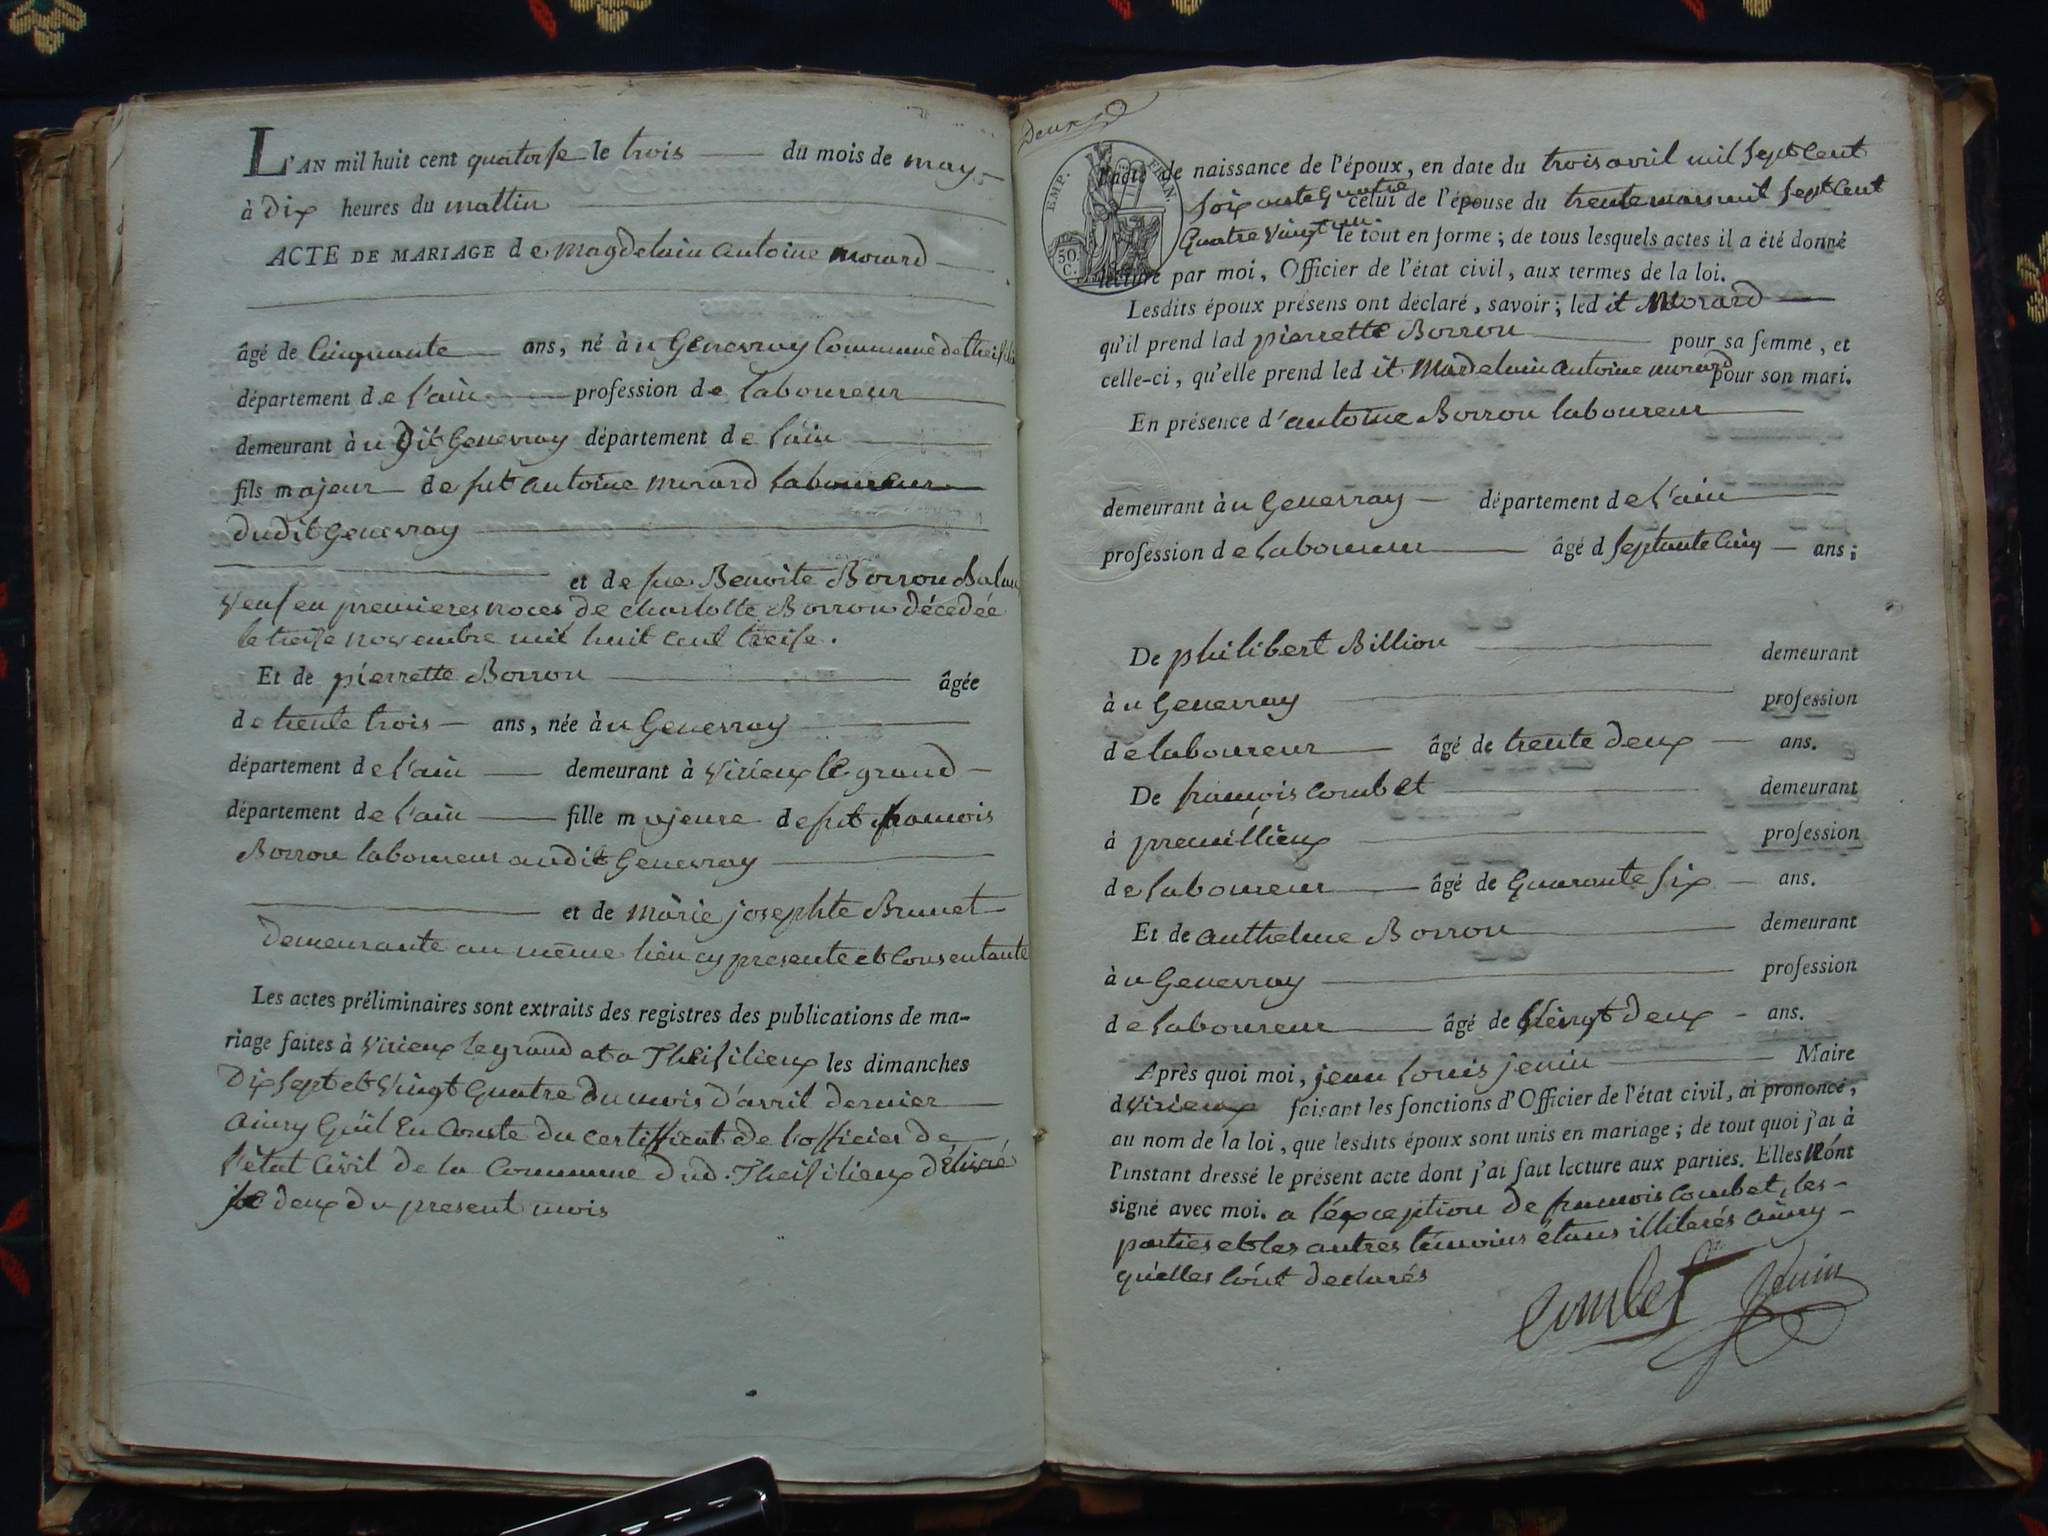 L'AN mil huit cent quatorse le trois du mois de may
à Dix heures du mattin
ACTE DE MARIAGE de Magdelain Antoine Morard
âgé de Cinquante ans, né àu Genevray Commune de
département de l'ain profession de laboureur
demeurant àu Dit Genevray département de l'ain
fils majeur de fut Antoine Morard laboureur
dudit Genevray
et de fue Benoite Borron
Veuf en premieres noces de Charlotte Borron décedée
le treise novembre mil huit cent treise.
Et de pierrette Borron âgée
de trente trois ans, née àu Genevray
département de l'ain demeurant à Virieux le grand
département de l'ain fille majeure de fut francois
Borron laboureur audit Genevray
et de Marie josephte Brunet
demeurante au même lieu cy presente et Consentante
Les actes préliminaires sont extraits des registres des publications de ma-
riage faites à Virieux le grand et a Theisilieux les dimanches
Dix Sept et Vingt Quatre du mois d'avril dernier
ainsy Qu'il En Conste du certifficat de l'officier de
l'état Civil de la Commune dud. Theisilieux délivré
le deux du present mois
Deux
EMP. FRAN.
50 C.
l'acte de naissance de l'époux, en date du trois avril mil Sept Cent
Soixante Quatre celui de l'épouse du trente mars mil Sept Cent
Quatre Vingt un le tout en forme; de tous lesquels actes il a été donné
lecture par moi, Officier de l'état civil, aux termes de la loi.
Lesdits époux présens ont déclaré, savoir; led it Morard
qu'il prend lad pierrette Borron pour sa femme, et
celle-ci, qu'elle prend led it Madelain Antoine morard pour son mari.
En présence d'antoine Borron laboureur
demeurant àu Genevray département de l'ain
profession de laboureur âgé d Septante Cinq ans;
De philibert Billion demeurant
àu Genevray profession
de laboureur âgé de trente deux ans.
De françois Combet demeurant
à premillieux profession
de laboureur âgé de Quarante Six ans.
Et de anthelme Borron demeurant
àu Genevray profession
de laboureur âgé de Vingt deux ans.
Après quoi moi, jean Louis jenin Maire
d Virieux faisant les fonctions d'Officier de l'état civil, ai prononcé,
au nom de la loi, que lesdits époux sont unis en mariage; de tout quoi j'ai à
l'instant dressé le présent acte dont j'ai fait lecture aux parties. Elles N'ónt
signé avec moi. a l'éxception de francois Combet, les
parties et les autres témoins étans illiterés ainsy
qu'elles l'ónt declarés
Combet Jenin